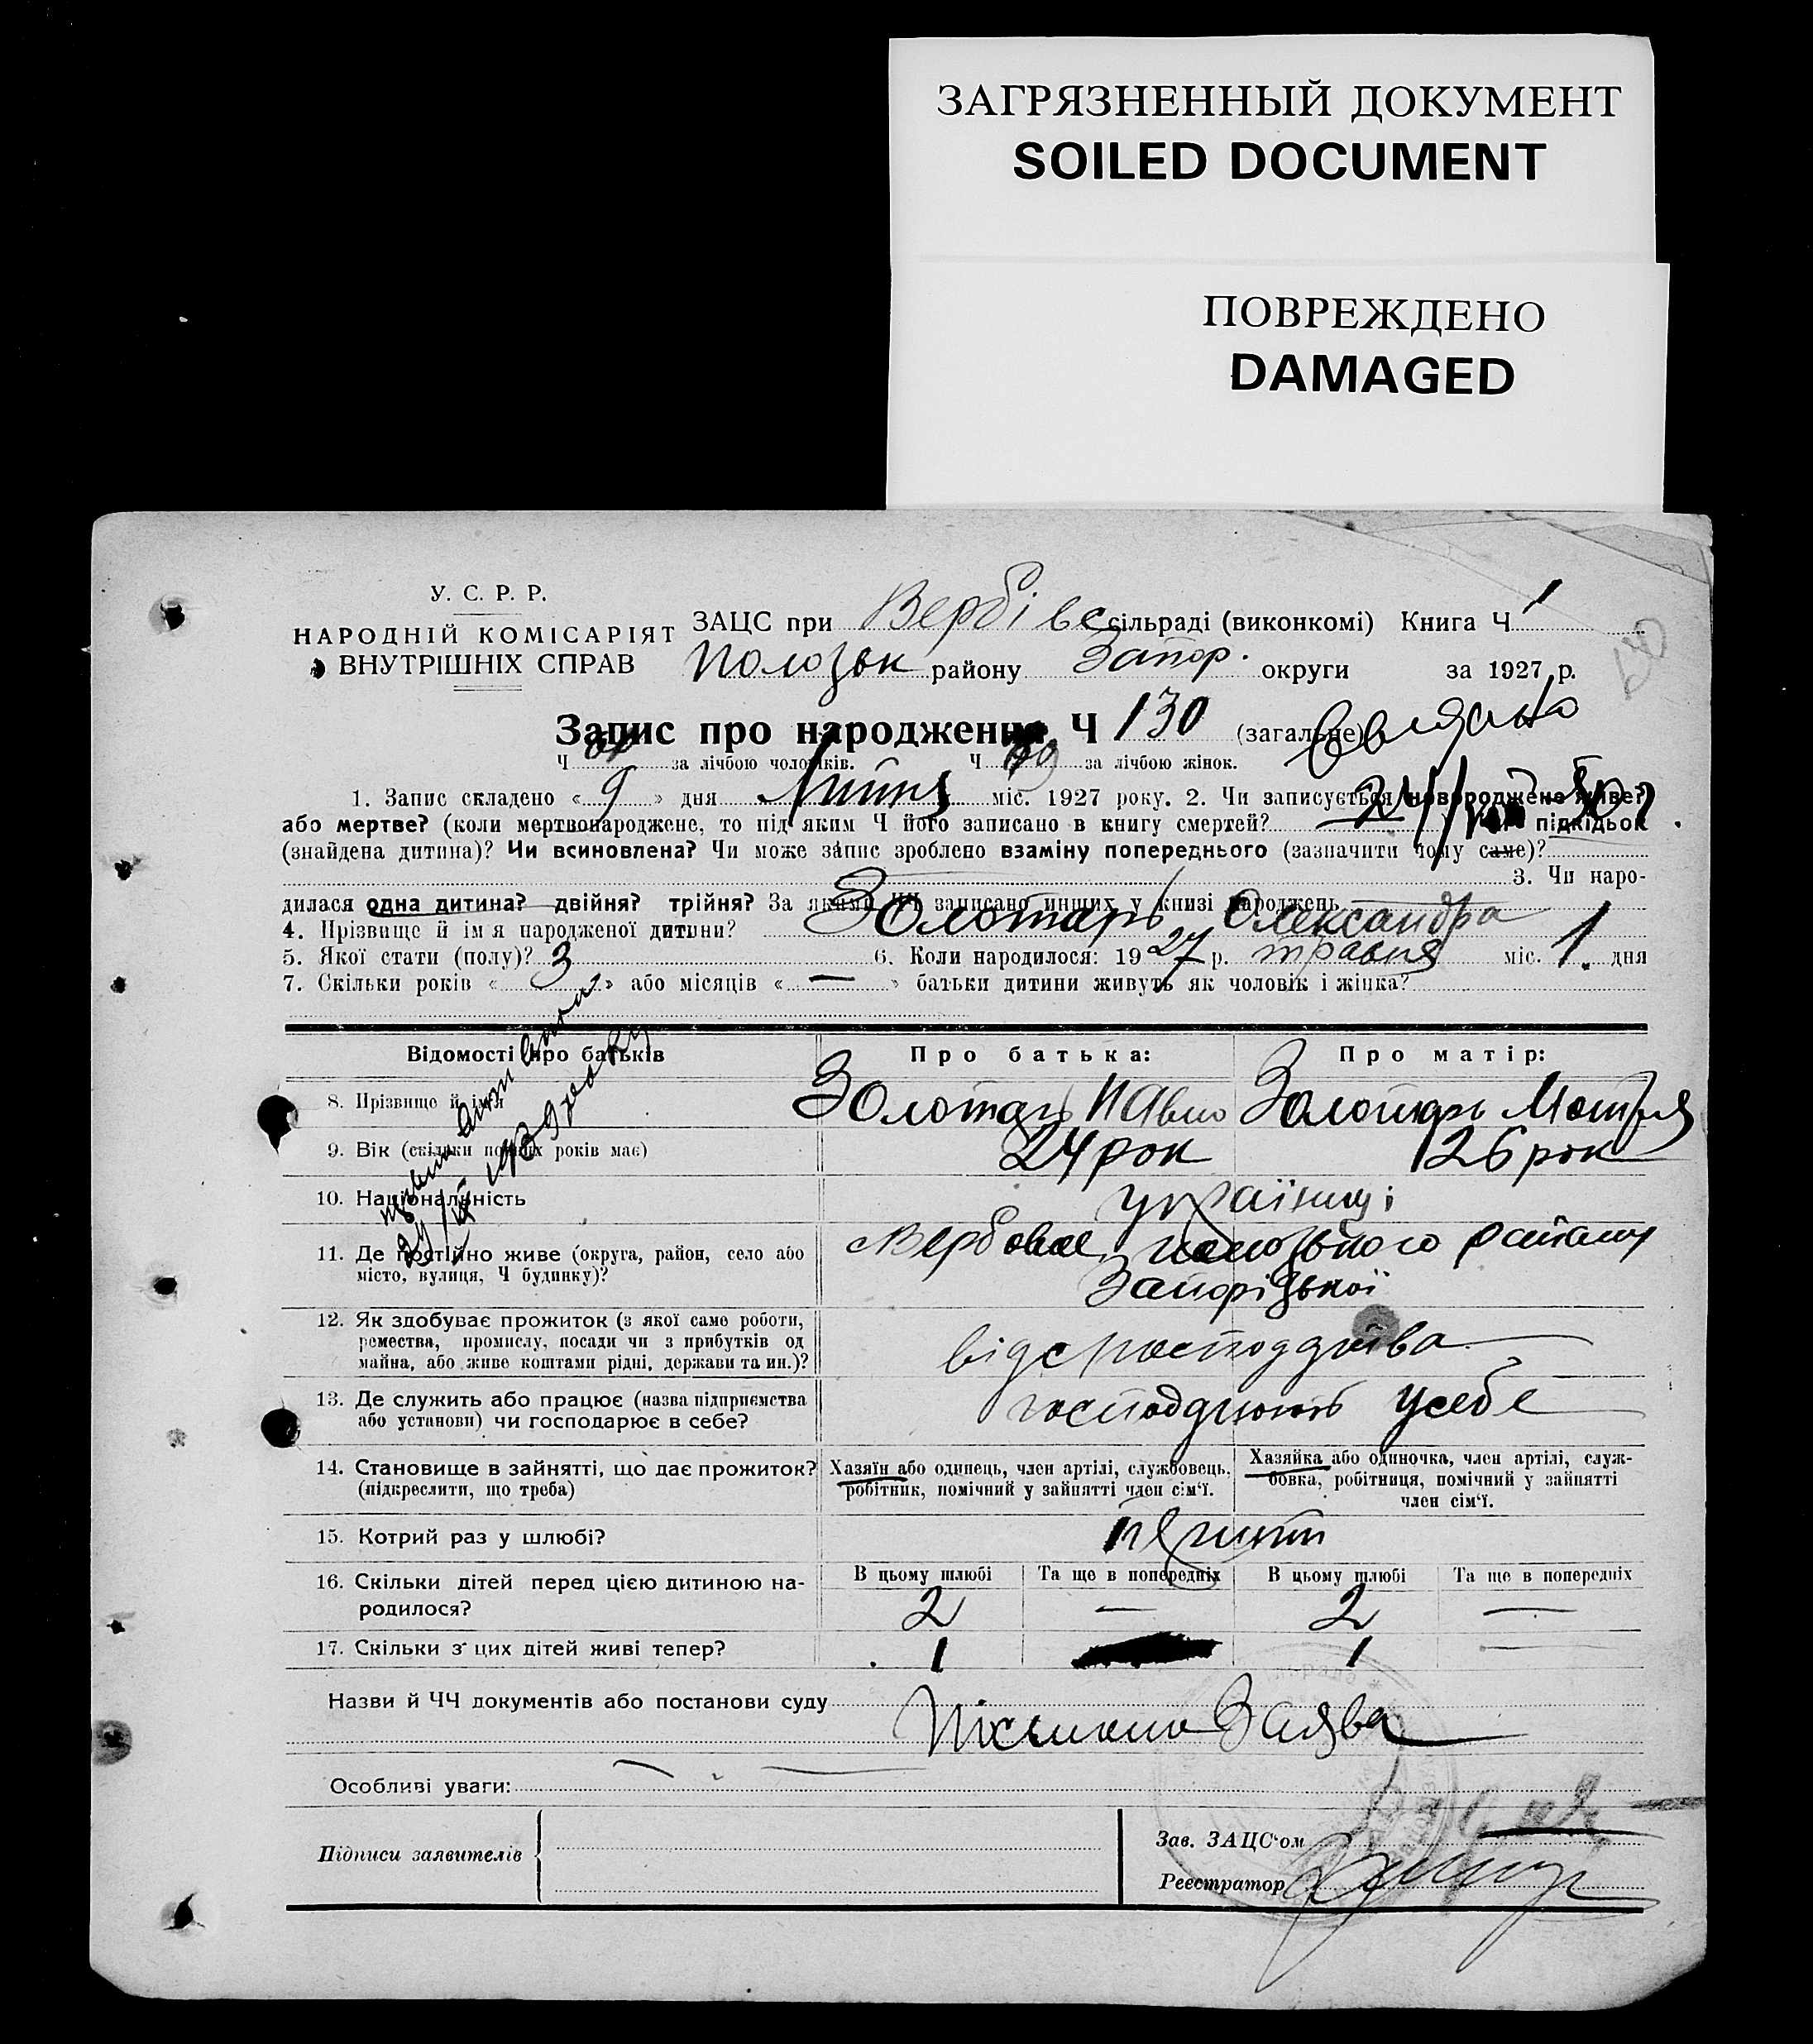 ЗАГРЯЗНЕННЫЙ ДОКУМЕНТ
SOILED DOCUMENT
ПОВРЕЖДЕНО
DAMAGED
У. С. Р. Р.
НАРОДНІЙ КОМІСАРІЯТ
ВНУТРІШНІХ СПРАВ
ЗАЦС при Вербівс сільраді (виконкомі) Книга Ч 1
Пологськ району Запор. округи за 1927 р.
Запис про народження Ч 130 (загальне)
Ч за лічбою чоловіків. Ч за лічбою жінок.
1. Запис складено « 9 » дня Липня міс. 1927 року. 2. Чи записується новороджене живе?
або мертве? (коли мертвонароджене, то під яким Ч його записано в книгу смертей? підкідьок
(знайдена дитина)? Чи всиновлена? Чи може запис зроблено взаміну попереднього (зазначити чому саме)?
3. Чи наро-
дилася одна дитина? двійня? трійня? За якими ЧЧ записано инших у книзі народжень
4. Прізвище й ім'я народженої дитини? Золотарь Олександра
5. Якої стати (полу)? Ж 6. Коли народилося: 1927 р. травня міс. 1 дня
7. Скільки років « » або місяців « — » батьки дитини живуть як чоловік і жінка?
Відомості про батьків Про батька: Про матір:
8. Прізвище й ім'я Золотарь Павло Золотарь Мотря
9. Вік (скільки повних років має) 24 рок 26 рок
10. Національність українці
11. Де постійно живе (округа, район, село або Вербове, пологського району
місто, вулиця, Ч будинку)? Запорізької
12. Як здобуває прожиток (з якої саме роботи,
ремества, промислу, посади чи з прибутків од
майна, або живе коштами рідні, держави та ин.)?
13. Де служить або працює (назва підприємства
або установи) чи господарює в себе? усебе
14. Становище в зайнятті, що дає прожиток? Хазяїн або одинець, член артілі, службовець, Хазяйка або одиночка, член артілі, служ-
(підкреслити, що треба) робітник, помічний у зайнятті член сім'ї. бовка, робітниця, помічний у зайнятті
член сім'ї.
15. Котрий раз у шлюбі?
16. Скільки дітей перед цією дитиною на- В цьому шлюбі Та ще в попередніх В цьому шлюбі Та ще в попередніх
родилося? 2 — 2 —
17. Скільки з цих дітей живі тепер? 1 1 —
Назви й ЧЧ документів або постанови суду
Заява
Особливі уваги:
Підписи заявителів
Зав. ЗАЦС'ом
Реєстратор